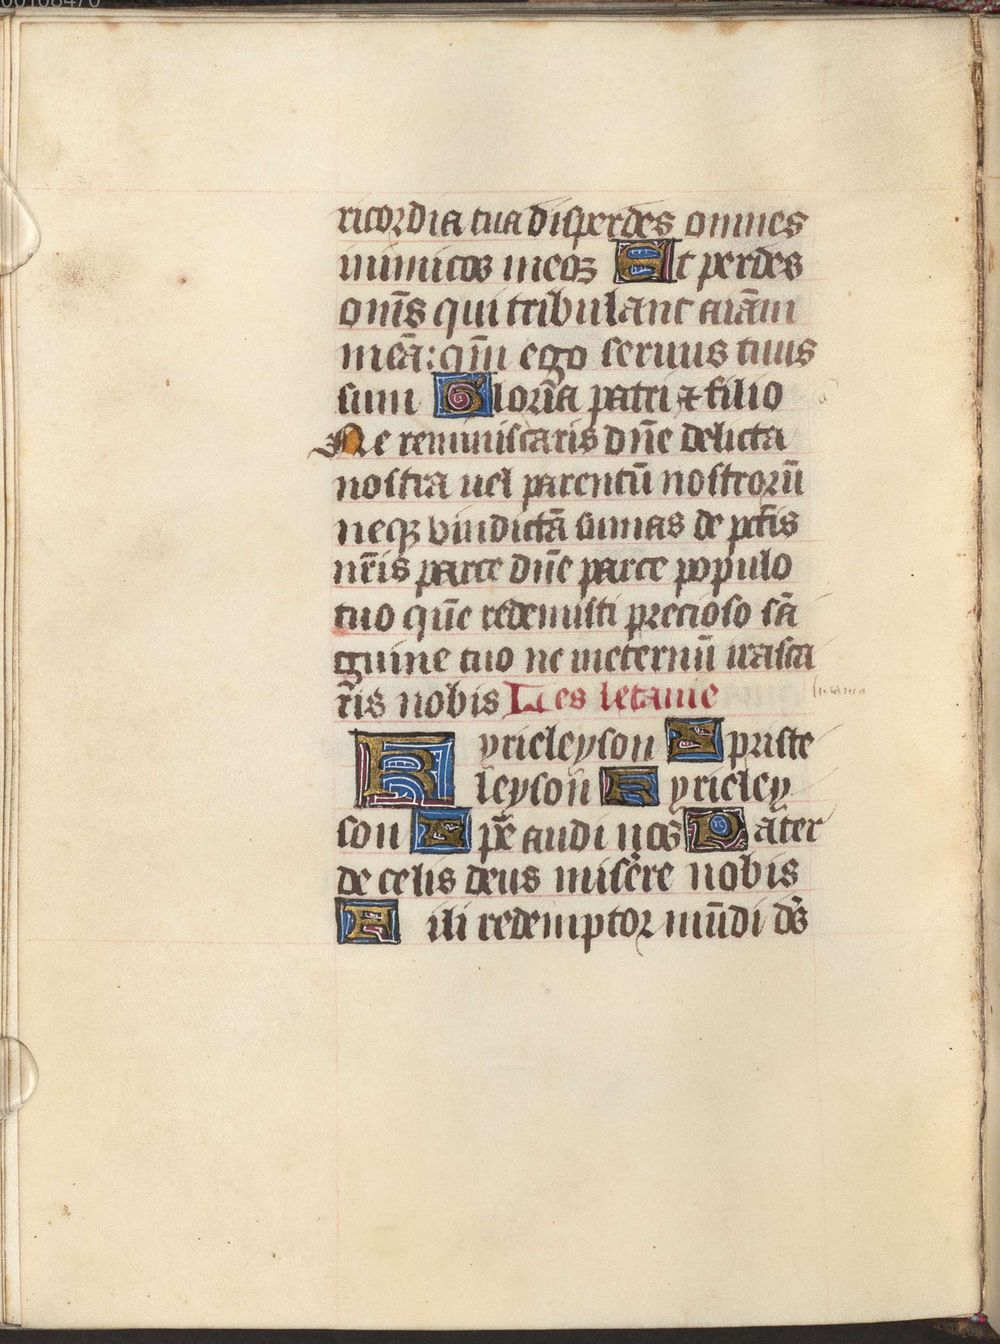 ricordia tua disperdes omnes
inimicos meos Et perdes
om̄s qui tribulant aīam
meā: qm̄ ego seruus tuus
sum Gloria patri ⁊ filio
Ne reminiscaris dn̄e delicta
nostra uel parentū nostrorū
neqꝫ vindictā sumas de pctīs
nr̄is parce dn̄e parce populo
tuo quē redemisti precioso sā
guine tuo ne ineternū irasca
r̄is nobis Les letanie
Kyrieleyson Xpriste
leyson Kyrieley
son Xpē audi nos Pater
de celis deus miserere nobis
Fili redemptor mūdi ds̄